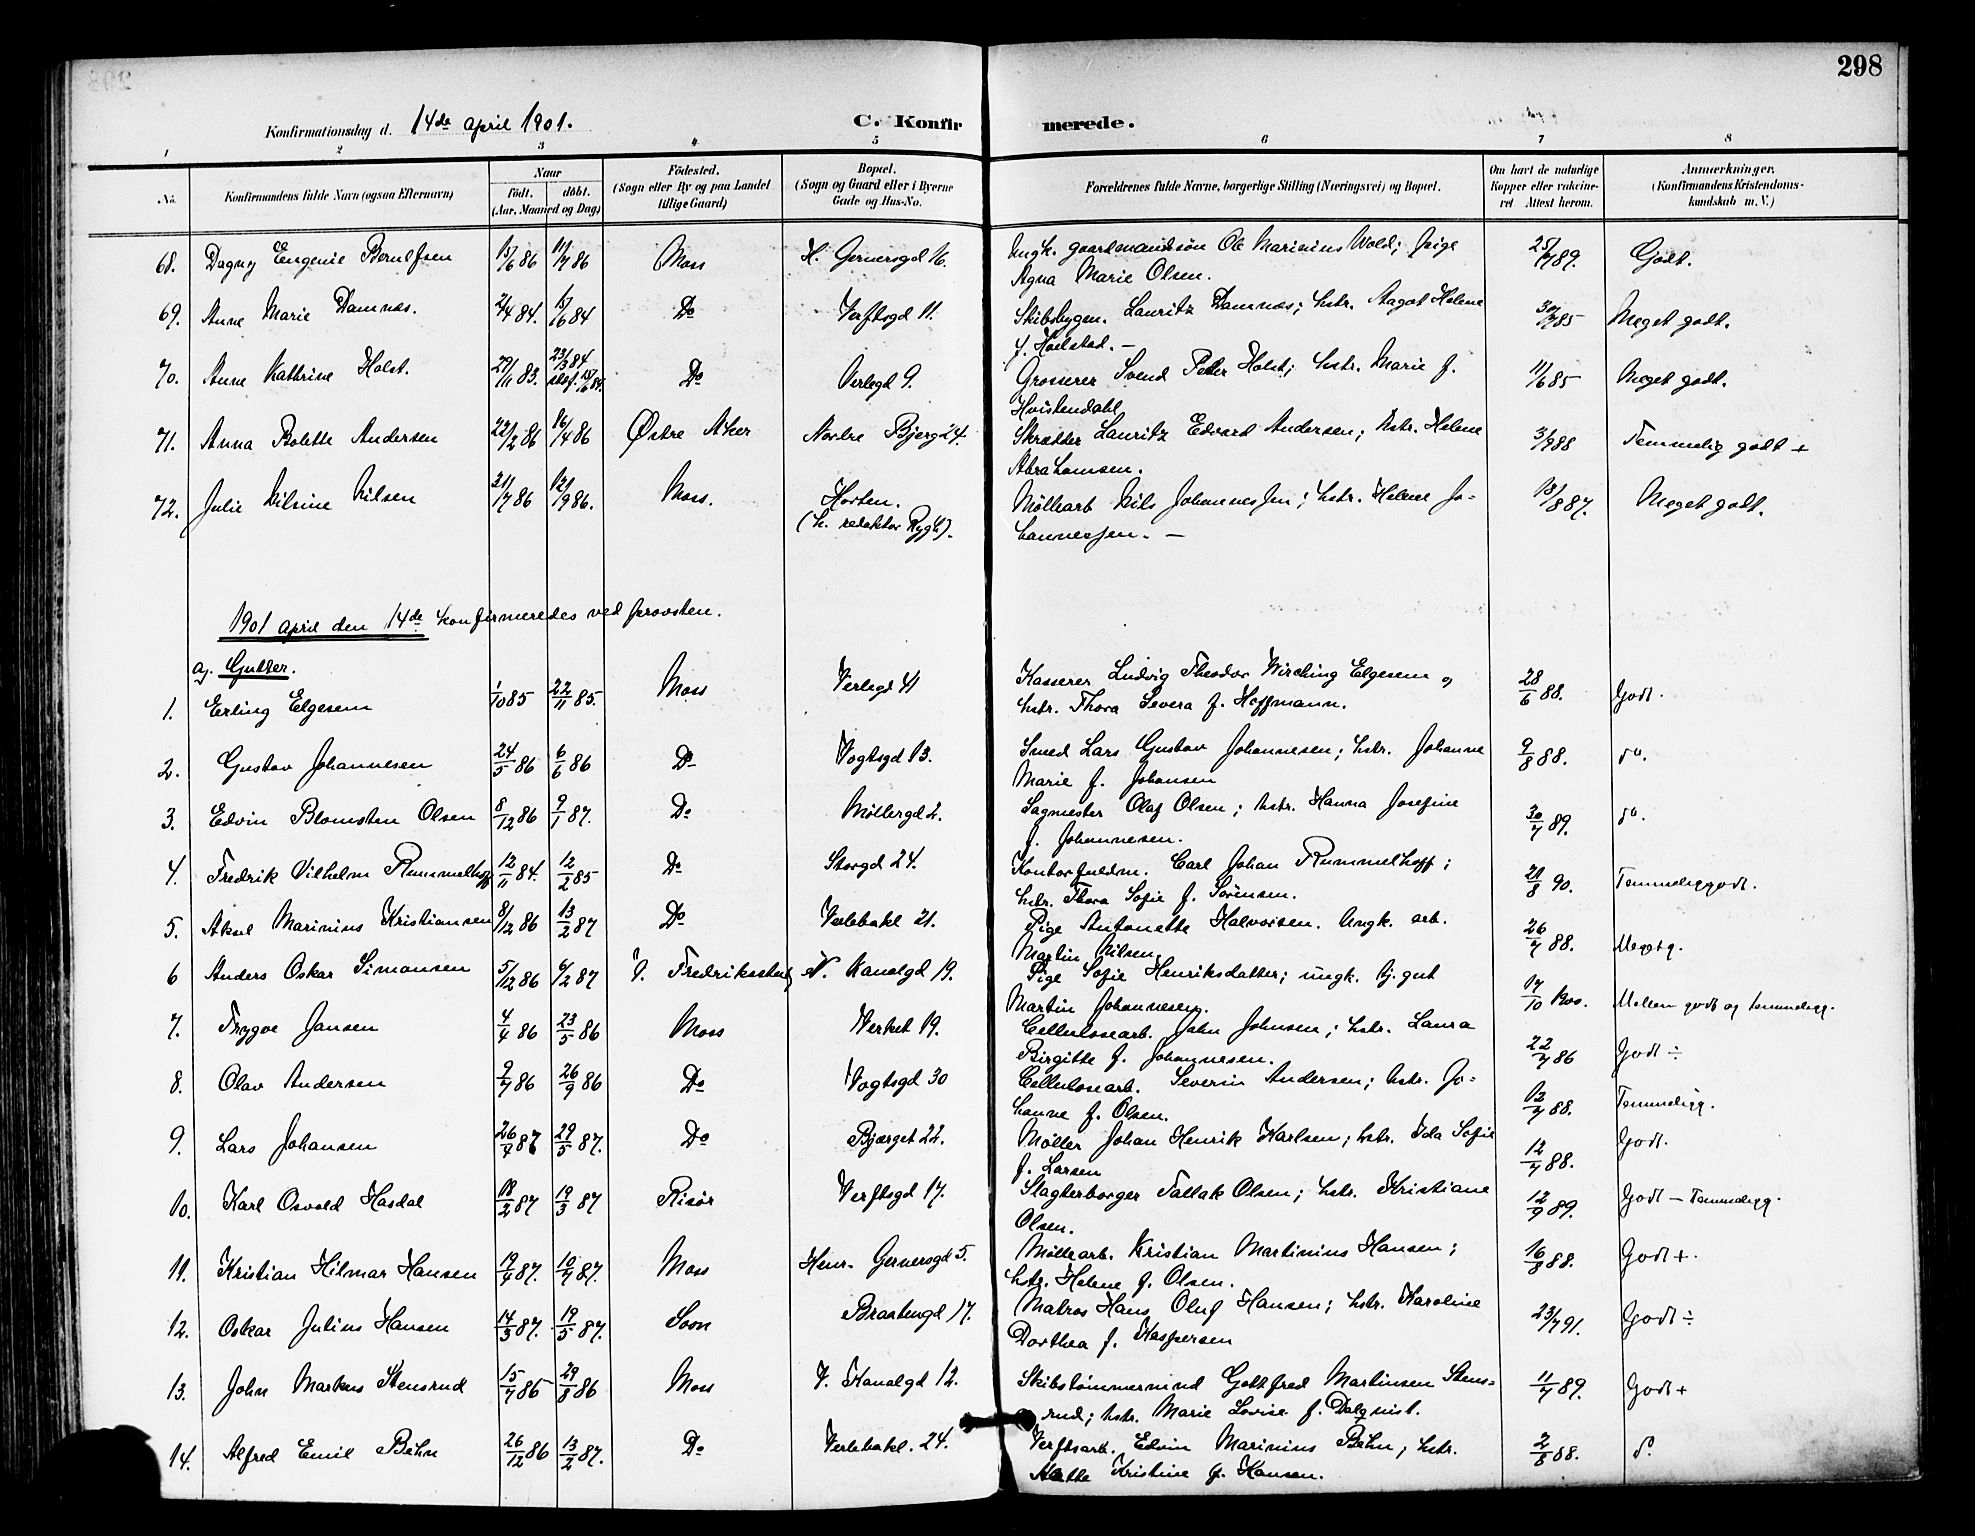 298
Konfirmationsdag d. 14de april 1901. C. Konfir merede.
1 2 3 4 5 6 7 8
No. Konfirmandens fulde Navn (ogsaa Efternavn) Naar født. døbt. (Aar, Maaned og Dag) Fødested. (Sogn eller By og paa Landet tillige Gaard) Bopæl. (Sogn og Gaard eller i Byerne Gade og Hus-No. Forældrenes fulde Navne, borgerlige Stilling (Næringsvei) og Bopæl. Om havt de naturlige Kopper eller vaccineret Attest herom. Anmærkninger. (Konfirmandens Kristendomskundskab m. V.)
68. Dagny Eugenie 15/6 86 11/7 86 Moss H. Gernersgd 16. Ungk. gaardmandssøn Ole Marinius Wold; pige 25/7 89. Godt.
Agna Marie Olsen.
69. Anne Marie Damnæs. 2/4 84. 15/6 84 Do Verftsgd 11. Skibsbygm. Lauritz Damnæs; hstr. Aagot Helene 30/7 85 Meget godt.
f. Hoelstad. —
70. Anne Kathrine Holst. 29/11 83. 23/3 84 Do Verlegd 9. Grosserer Svend Peter Holst; hstr. Marie f. 11/6 85 Meget godt.
Hvistendahl
71. Anna Bolette Andersen 22/2 86 16/4 86 Østre Aker Nordre Bjerg 24. Skrædder Lauritz Edvard Andersen; hstr. Helene 3/9 88 Temmelig godt +
Abrahamsen.
72. Julie Nilsine Nilsen 21/7 86 12/9 86. Moss. Horten. Møllearb Nils Johannessen; hstr. Helene Jo- 18/8 87. Meget godt.
(h. redaktør Rygh). hannessen. —
1901 april den 14de konfirmeredes ved provsten.
a). Gutter.
1. Erling Elgesem 1/10 85 22/11 85. Moss Verlegd 41 Kasserer Ludvig Theodor Wirching Elgesem og 28/6 88. Godt.
hstr. Thora Severa f. Hoffmann.
2. Gustav Johannesen 24/5 86 6/6 86 Do Vogtsgd 13. Smed Lars Gustav Johannesen; hstr. Johanne 9/8 88. do.
Marie f. Johansen
3. Edvin Blomsten Olsen 8/12 86 9/1 87. Do Møllergd 2. Sagmester Olaf Olsen; hstr. Hanna Josefine 30/7 89. do.
f. Johannesen.
4. Fredrik Vilhelm Rummelhoff 12/11 84. 12/2 85 Do Storgd 24. Kontorfuldm. Carl Johan Rummelhoff; 21/8 90. Temmeliggodt.
hstr. Thora Sofie f. Sørensen.
5. Aksel Marinius Kristiansen 8/12 86 13/2 87 Do Verlebakk 21. Pige Antonette Halvorsen. Ungk. arb. 26/7 88. Megetg.
Martin Nilsen.
6 Anders Oskar Simonsen 5/12 86 6/2 87 Ø. Fredrikstad N. Kanalgd 19. Pige Sofie Henriksdatter; ungk. tj.gut 17/10 1900. Mellem godt og temmeligg.
Martin Johannesen.
7. Trygve Jansen 4/4 86 23/5 86 Moss Verket 19. Cellulosearb. John Johnsen; hstr. Laura 22/7 86 Godt ÷
Birgitte f. Johannesen.
8. Olav Andersen 9/7 86 26/9 86 Do Vogtsgd 30 Cellulosearb. Severin Andersen; hstr. Jo- 12/7 88. Temmeligg.
hanne f. Olsen.
9. Lars Johansen 26/4 87 29/5 87. Do Bjærget 22. Møller Johan Henrik Karlsen; hstr. Ida Sofie 12/7 88. Godt.
f. Larsen
10. Karl Osvald Hasdal 18/2 87 19/3 87 Risør Verftsgd 17. Slagterborger Tallak Olsen; hstr. Kristiane 12/9 89. Godt – Temmeligg.
Olsen.
11. Kristian Hilmar Hansen 19/4 87. 10/7 87. Moss Henr. Gernersgd 5. Møllearb. Kristian Martinius Hansen; 16/8 88. Godt +.
hstr. Helene f. Olsen.
12. Oskar Julius Hansen 14/3 87. 19/5 87. Soon Braatengd 17. Matros Hans Oluf Hansen; hstr. Karoline 23/7 91. Godt ÷
Dorthea f. Kaspersen
13. John Markus Stensrud 15/7 86 29/8 86 Moss V. Kanalgd 12. Skibstømmermand Gottfred Martinsen Stens- 11/7 89. Godt +
rud; hstr. Marie Lovise f. Dalqvist.
14. Alfred Emil Behn 26/12 86 13/2 87. Do Verlebakk. 24. Verftsarb. Edvin Marinius Behn; hstr. 2/8 88. do
Mette Kristine f. Hansen.